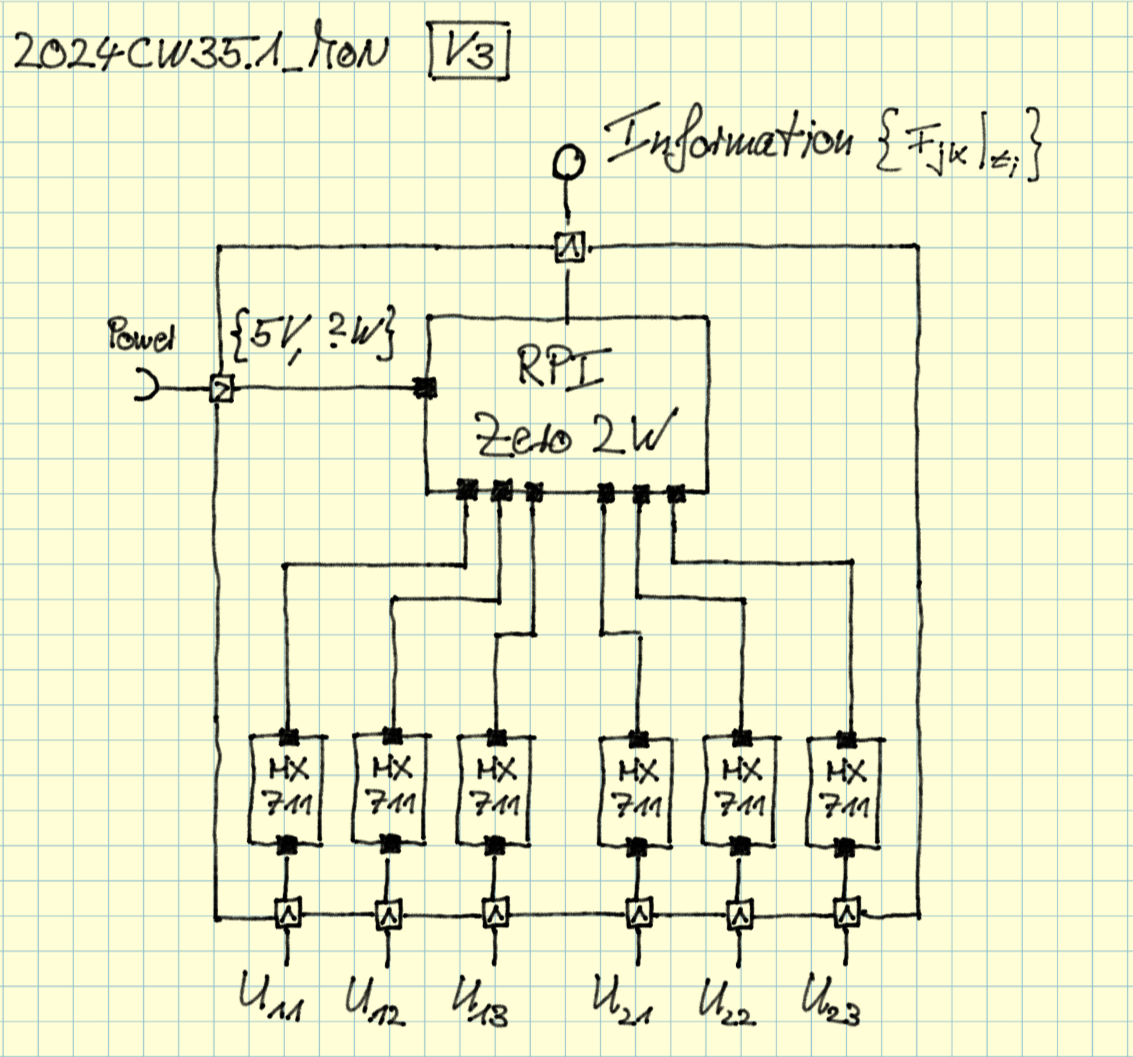 2024CW35.1_MON V3
Information {F_jk|_t_i}
Power {5V, ?W}
RPI
Zero 2W
HX HX HX HX HX HX
711 711 711 711 711 711
U_11 U_12 U_13 U_21 U_22 U_23